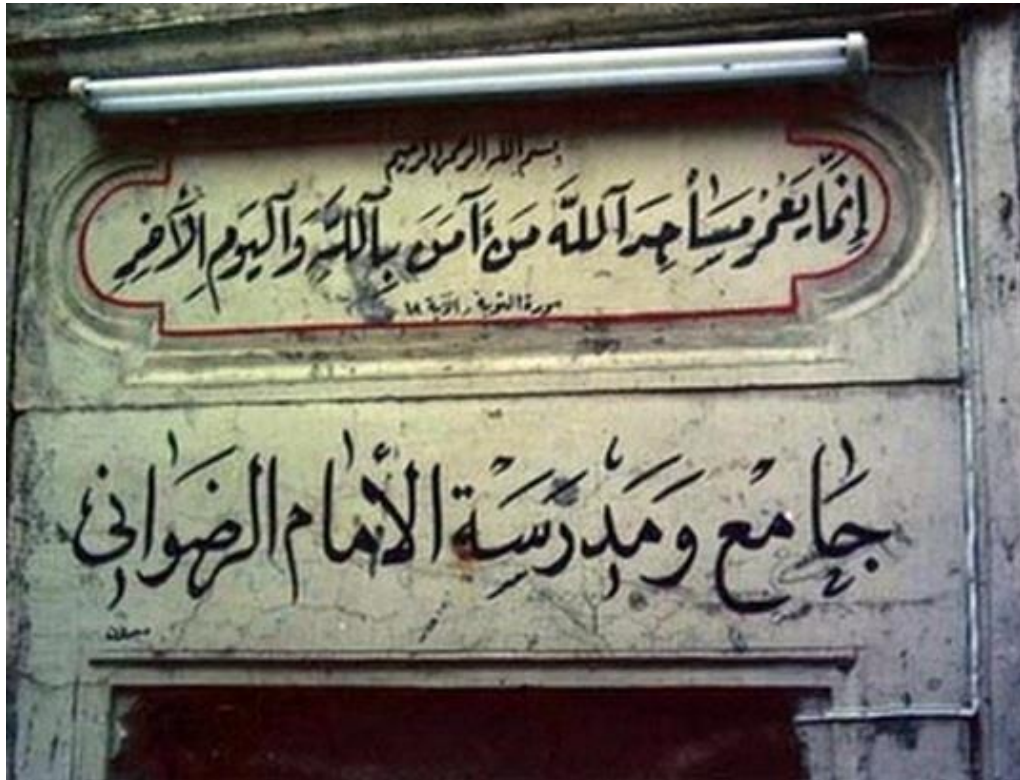 بسم الله الرحمن الرحيم
إِنَّمَا يَعْمُرُ مَسَاجِدَ ٱللَّهِ مَنْ ءَامَنَ بِٱللَّهِ وَٱلْيَوْمِ الْأَخِرِ
سورة التوبة ـ الآية ١٨
جَامع وَمَدرَسَة الأمام الرضَواني